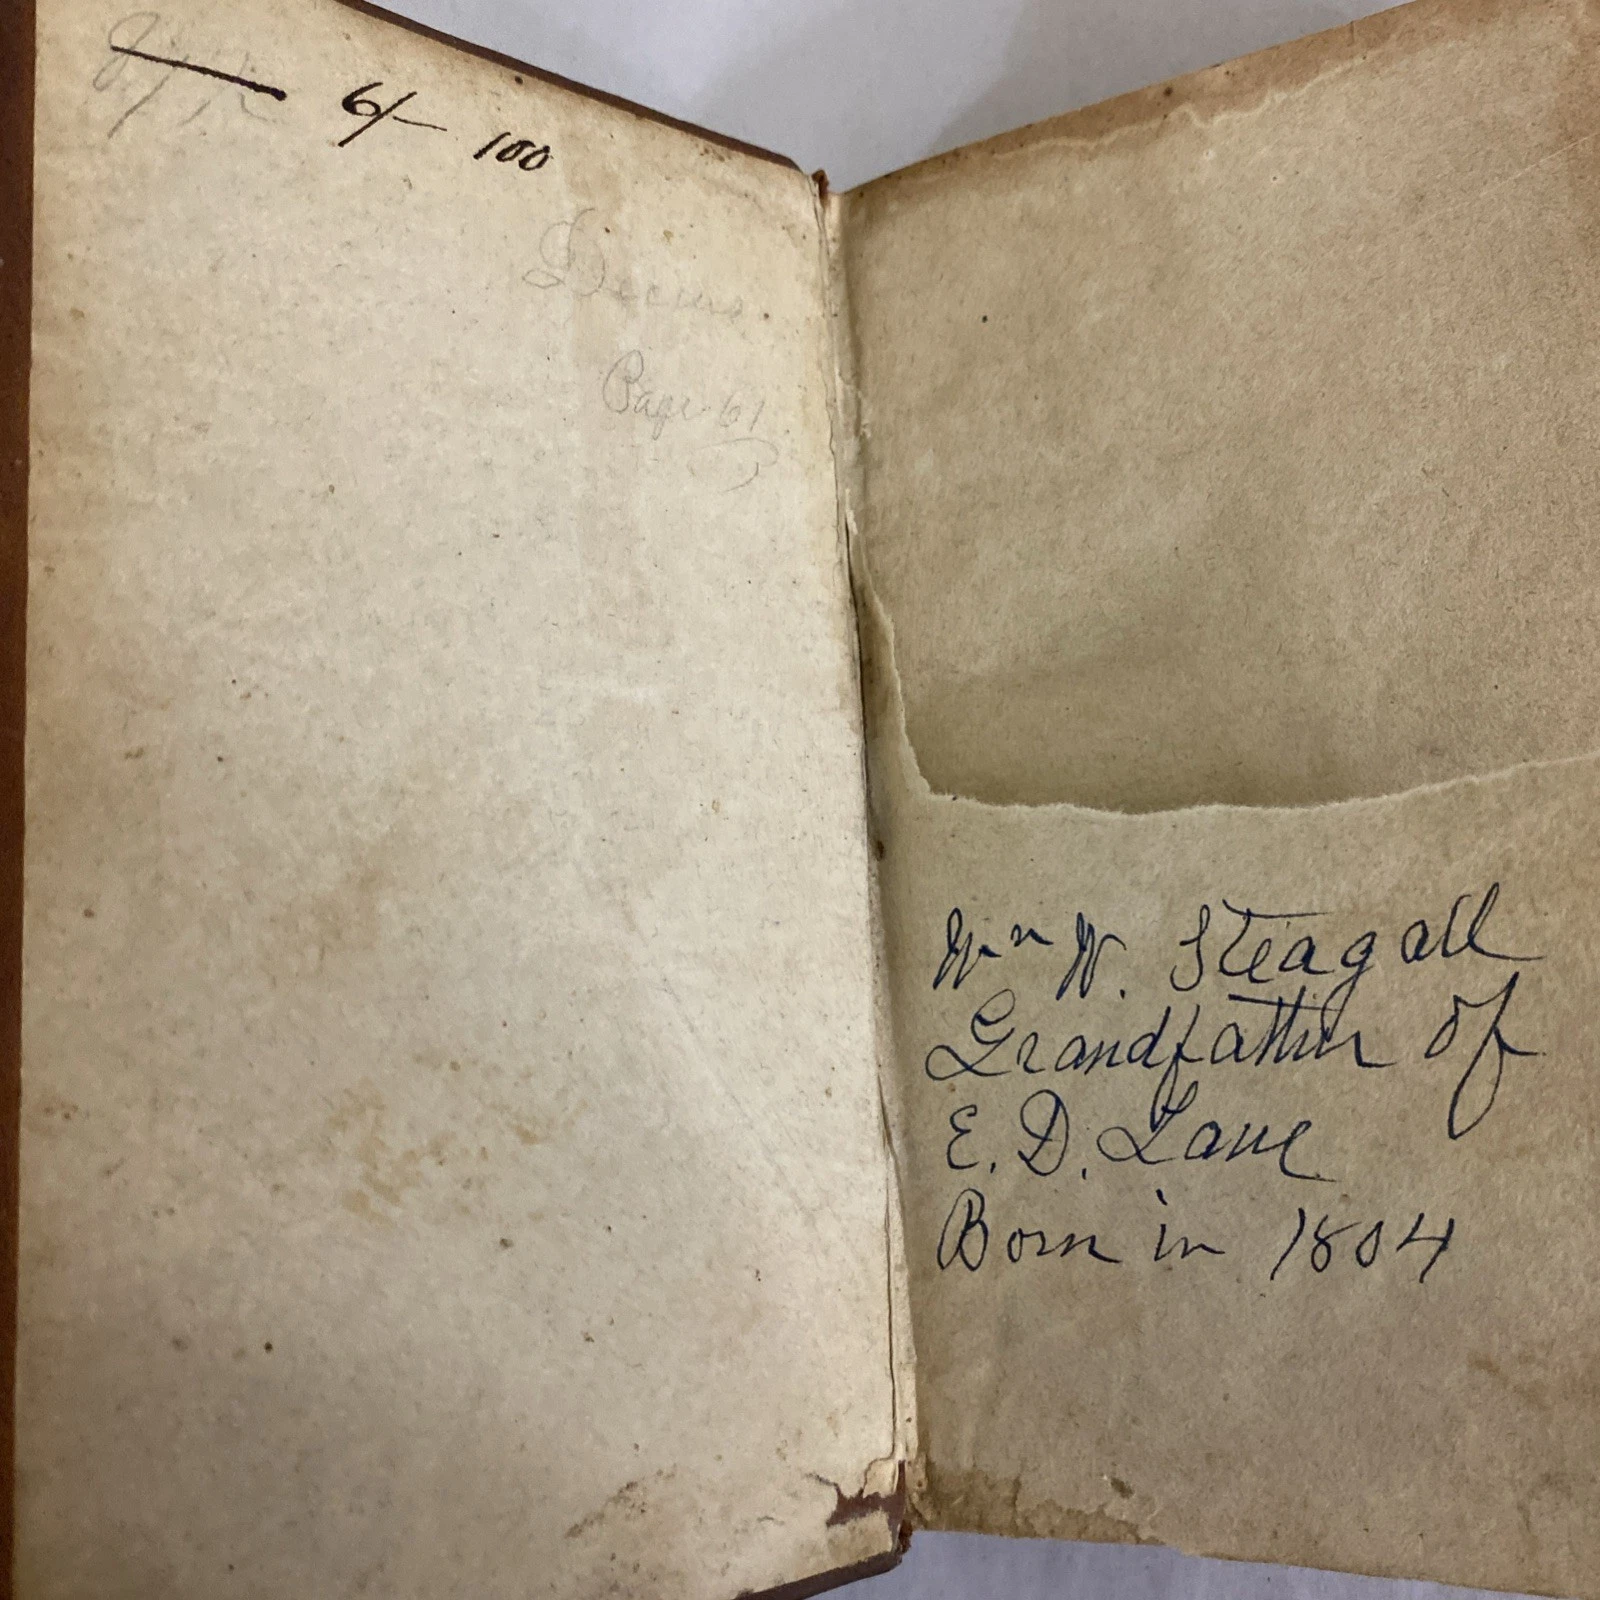 6/- 100
Page 61
Wm W. Steagall
Grandfather of
E. D. Lane
Born in 1804